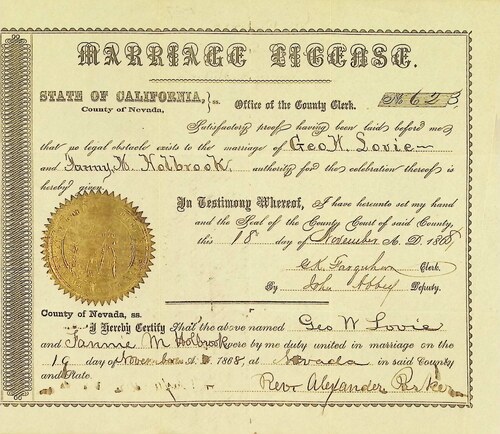 MARRIAGE LICENSE.
STATE OF CALIFORNIA, } ss.
County of Nevada,
Office of the County Clerk.
No 623
Satisfactory proof having been laid before me
that no legal obstacle exists to the marriage of Geo W. Lovie
and Fanny M. Holbrook, authority for the celebration thereof is
hereby given
In Testimony Whereof, I have hereunto set my hand
and the Seal of the County Court of said County,
this 18 day of November A. D. 1868
Clerk.
By John Abbey Deputy.
County of Nevada, ss.
I Hereby Certify That the above named Geo W Lovie
and Fannie M Holbrook were by me duly united in marriage on the
19 day of November A. D. 1868, at Nevada in said County
and State.
Revr Alexander Parker